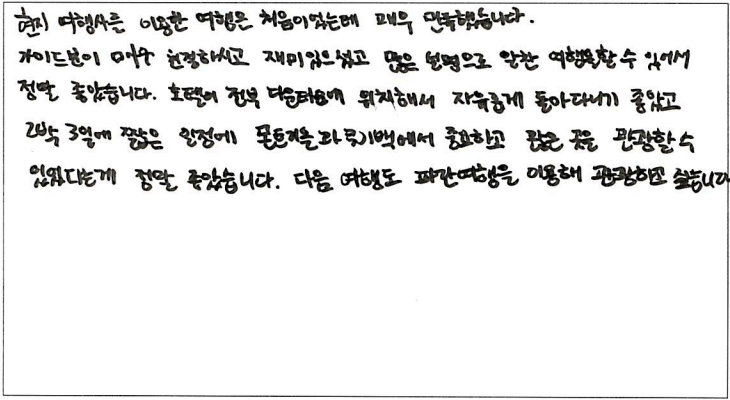 현지 여행사를 이용한 여행은 처음이었는데 매우 만족했습니다.
가이드분이 매우 친절하시고 재미있으셨고 많은 설명으로 알찬 여행을할 수 있어서
정말 좋았습니다. 호텔이 전부 다운타운에 위치해서 자유롭게 돌아다니기 좋았고
2박 3일에 짧은 일정에 몬트리올과 퀘백에서 중요하고 많은 곳을 관광할 수
있었다는게 정말 좋았습니다. 다음 여행도 파란여행을 이용해 관광하고 싶습니다